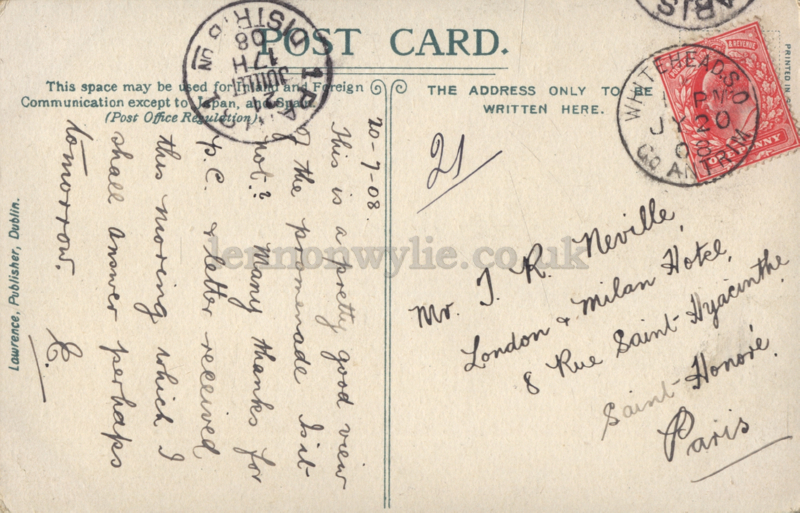 POST CARD.
This space may be used for Inland and Foreign
Communication except to Japan, and Spain.
(Post Office Regulation).
THE ADDRESS ONLY TO BE
WRITTEN HERE.
20-7-08.
This is a pretty good view
of the promenade Is it
not? Many thanks for
p.c. & letter received
this morning which I
shall answer perhaps
tomorrow.
E.
21
Mr. J. R. Neville,
London & Milan Hotel,
8 Rue Saint Hyacinthe
Saint-Honoré.
Paris
WHITEHEAD.S.O
PM
JY 20
08
CO. ANTRIM
ONE PENNY
& REVENUE
PARIS
17 H
JUILLET
08
DISTR.
ON
Lawrence, Publisher, Dublin.
PRINTED IN
lennonwylie.co.uk